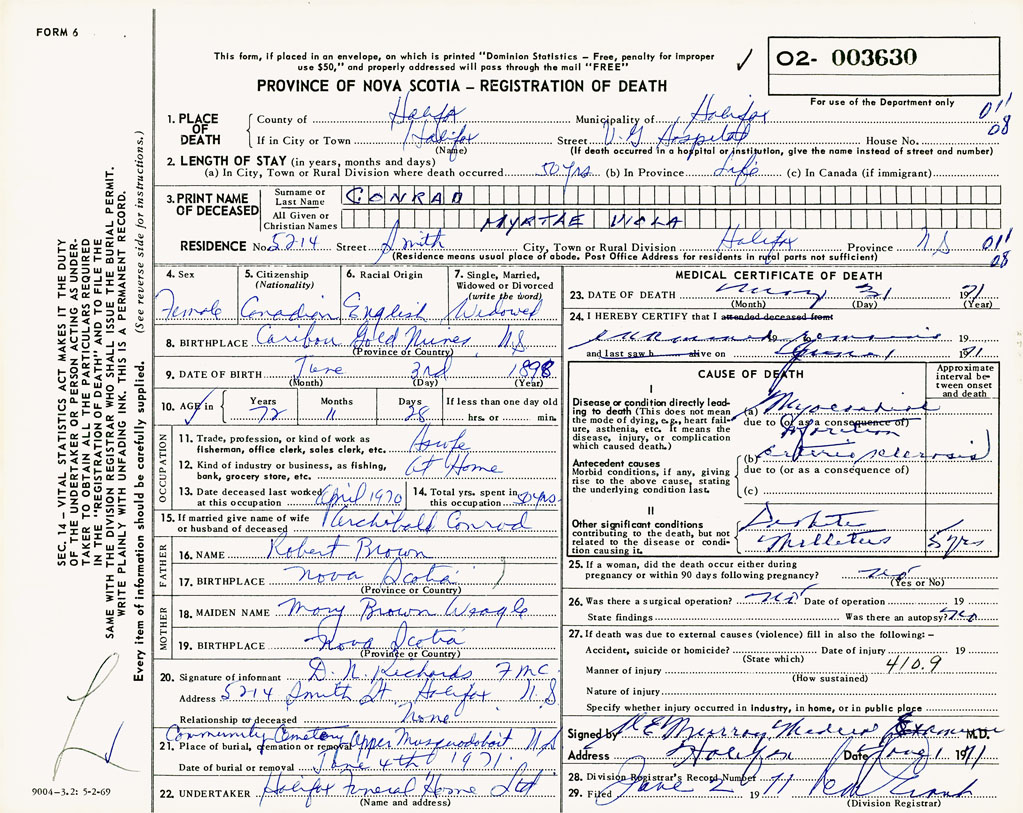 FORM 6
This form, if placed in an envelope, on which is printed "Dominion Statistics – Free, penalty for improper
use $50," and properly addressed will pass through the mail "FREE"
✓
02- 003630
PROVINCE OF NOVA SCOTIA – REGISTRATION OF DEATH
For use of the Department only
1. PLACE OF DEATH
County of Halifax Municipality of Halifax 01'
If in City or Town Halifax Street V.G Hospital House No. 08
(Name) (If death occurred in a hospital or institution, give the name instead of street and number)
2. LENGTH OF STAY (in years, months and days)
(a) In City, Town or Rural Division where death occurred 50 yrs (b) In Province Life (c) In Canada (if immigrant)
3. PRINT NAME OF DECEASED
Surname or Last Name CONRAD
All Given or Christian Names MYRTHE VIOLA
RESIDENCE No. 5214 Street Smith City, Town or Rural Division Halifax Province N S 01'
(Residence means usual place of abode. Post Office Address for residents in rural parts not sufficient) 08
SEC. 14 – VITAL STATISTICS ACT MAKES IT THE DUTY
OF THE UNDERTAKER OR PERSON ACTING AS UNDER-
TAKER TO OBTAIN ALL THE PARTICULARS REQUIRED
IN THE "REGISTRATION OF DEATH" AND TO FILE THE
SAME WITH THE DIVISION REGISTRAR WHO SHALL ISSUE THE BURIAL PERMIT.
WRITE PLAINLY WITH UNFADING INK. THIS IS A PERMANENT RECORD.
Every item of Information should be carefully supplied. (See reverse side for instructions.)
4. Sex Female
5. Citizenship (Nationality) Canadian
6. Racial Origin English
7. Single, Married, Widowed or Divorced (write the word) Widowed
8. BIRTHPLACE Caribou Gold Mines, N.S
(Province or Country)
9. DATE OF BIRTH June 3rd 1898
(Month) (Day) (Year)
10. AGE in Years 72 Months 11 Days 28 If less than one day old hrs. or min.
OCCUPATION
11. Trade, profession, or kind of work as
fisherman, office clerk, sales clerk, etc.
12. Kind of industry or business, as fishing, At Home
bank, grocery store, etc.
13. Date deceased last worked at this occupation April 1970
14. Total yrs. spent in this occupation 50 yrs
15. If married give name of wife or husband of deceased Archibald Conrad
FATHER
16. NAME Robert Brown
17. BIRTHPLACE Nova Scotia
(Province or Country)
MOTHER
18. MAIDEN NAME Mary Brown Weagle
19. BIRTHPLACE Nova Scotia
(Province or Country)
20. Signature of informant D. N. Richards FMC
Address 5214 Smith St. Halifax N.S
Relationship to deceased None
Community Cemetery Upper Musquodoboit N S
21. Place of burial, cremation or removal
Date of burial or removal June 4th 1971
22. UNDERTAKER Halifax Funeral Home Ltd
(Name and address)
9004–3.2: 5-2-69
MEDICAL CERTIFICATE OF DEATH
23. DATE OF DEATH May 31 1971
(Month) (Day) (Year)
24. I HEREBY CERTIFY that I attended deceased from
19 19
and last saw h alive on 1971
CAUSE OF DEATH
Approximate interval be-tween onset and death
I
Disease or condition directly lead-
ing to death (This does not mean
the mode of dying, e.g., heart fail-
ure, asthenia, etc. It means the
disease, injury, or complication
which caused death.)
(a) Myocardial
due to (or as a consequence of)
Infarction
Antecedent causes
Morbid conditions, if any, giving
rise to the above cause, stating
the underlying condition last.
(b) sclerosis
due to (or as a consequence of)
(c)
II
Other significant conditions
contributing to the death, but not
related to the disease or condi-
tion causing it.
Mellitus 5 yrs
25. If a woman, did the death occur either during
pregnancy or within 90 days following pregnancy? no
(Yes or No)
26. Was there a surgical operation? no Date of operation 19
State findings Was there an autopsy? no
27. If death was due to external causes (violence) fill in also the following: –
Accident, suicide or homicide? Date of injury 19
(State which) 410.9
Manner of injury
(How sustained)
Nature of injury
Specify whether injury occurred in Industry, in home, or in public place
Signed by Murray Medical Examiner M.D.
Address Halifax Date 1 1971
28. Division Registrar's Record Number
29. Filed June 2 1971
(Division Registrar)